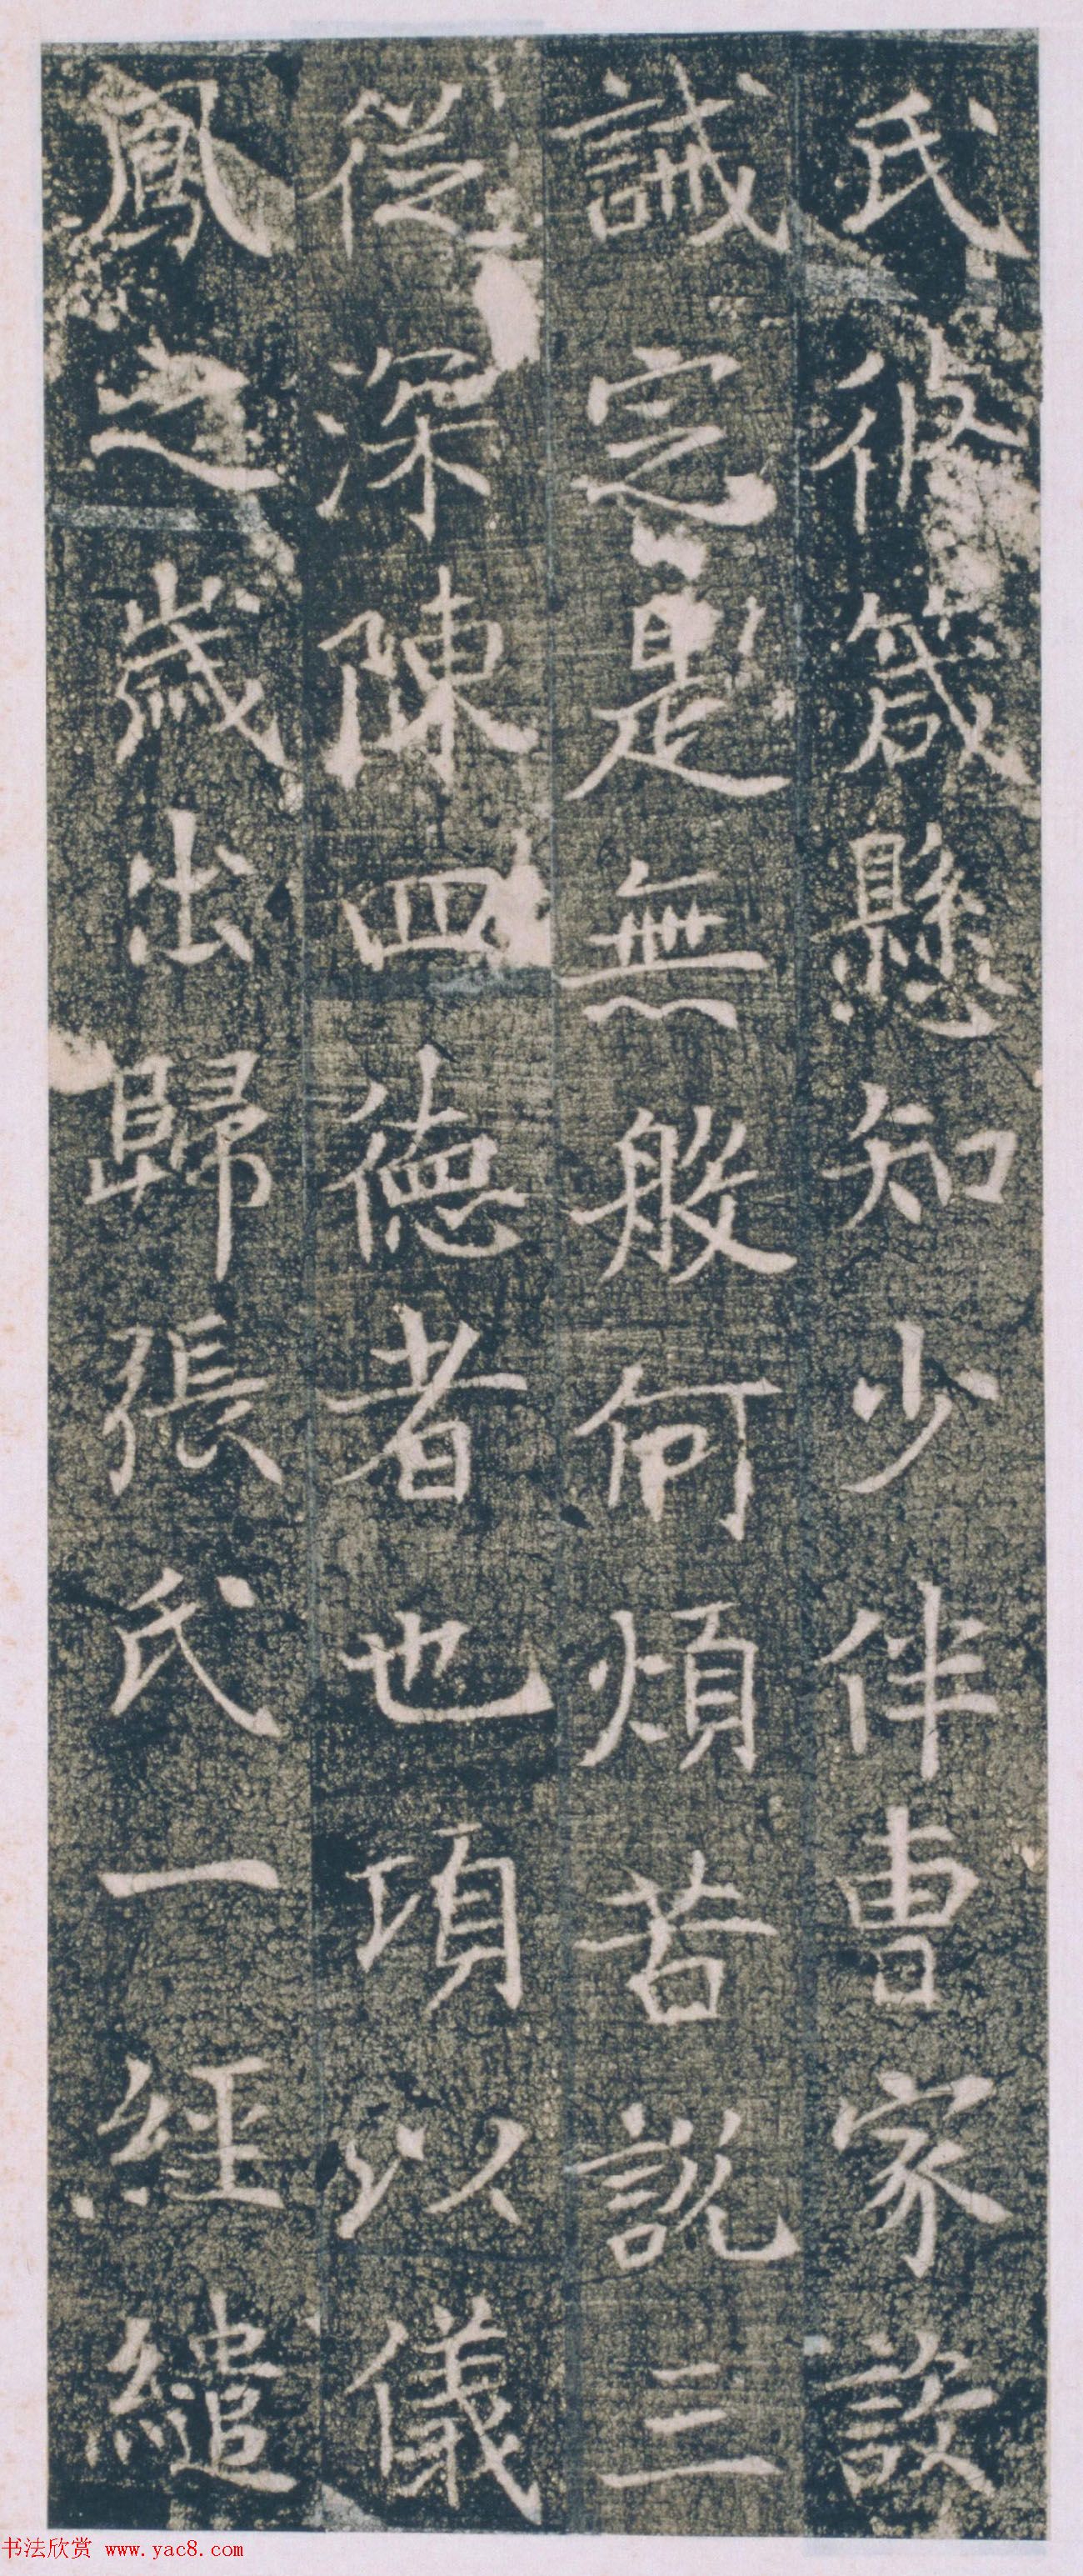 氏修箴懸知少伴曹家設
誡定是無般何煩苦説三
從深陳四德者也項以儀
鳳之歲出歸張氏一經繾
书法欣赏 www.yac8.com